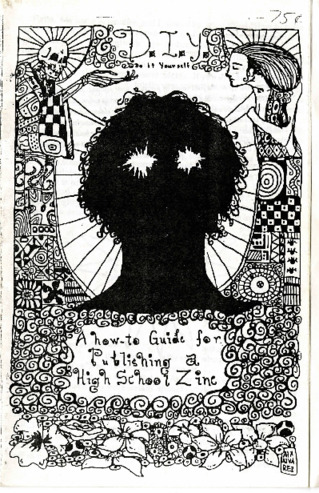 75¢
D.I.Y.
Do it Yourself
A how-to Guide for
Publishing a
High School Zine